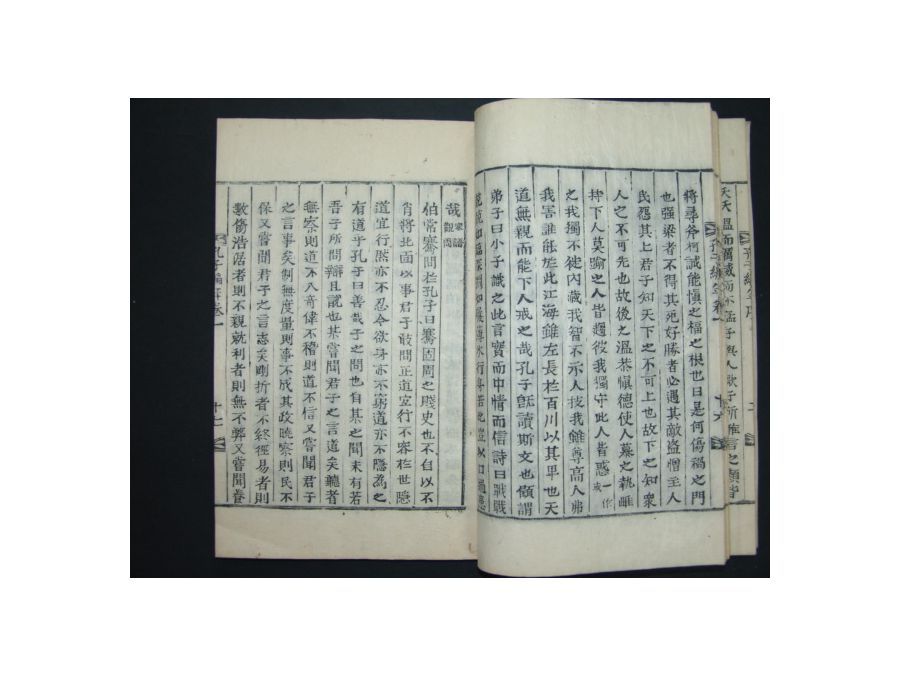 夭夭溫而
孔子編年
將尋斧柯誠能愼之福之根也曰是何傷禍之門
也强梁者不得其死好勝者必遇其敵盜憎主人
民怨其上君子知天下之不可上也故下之知衆
人之不可先也故後之溫恭愼德使人慕之執雌
持下人莫踰之人皆趨彼我獨守此人皆惑一作或
之我獨不徙內藏我智不示人技我雖尊高人弗
我害誰能於此江海雖左長於百川以其卑也天
道無親而能下人戒之哉孔子旣讀斯文也顧謂
弟子曰小子識之此言實而中情而信詩曰戰戰
兢兢如臨深淵如履薄氷行身若此豈以口過患
哉家語觀周
伯常騫問於孔子曰騫固周之賤史也不自以不
肖將北面以事君子敢問正道宜行不容於世隱
道宜行然亦不忍今欲身亦不窮道亦不隱爲之
有道乎孔子曰善哉子之問也自某之聞未有若
吾子所問辯且說也某嘗聞君子之言道矣聽者
無察則道不入奇偉不稽則道不信又嘗聞君子
之言事矣制無度量則事不成其政曉察則民不
保又嘗聞君子之言志矣剛折者不終徑易者則
數傷浩倨者則不親就利者則無不弊又嘗聞養
孔子編年卷一
十七